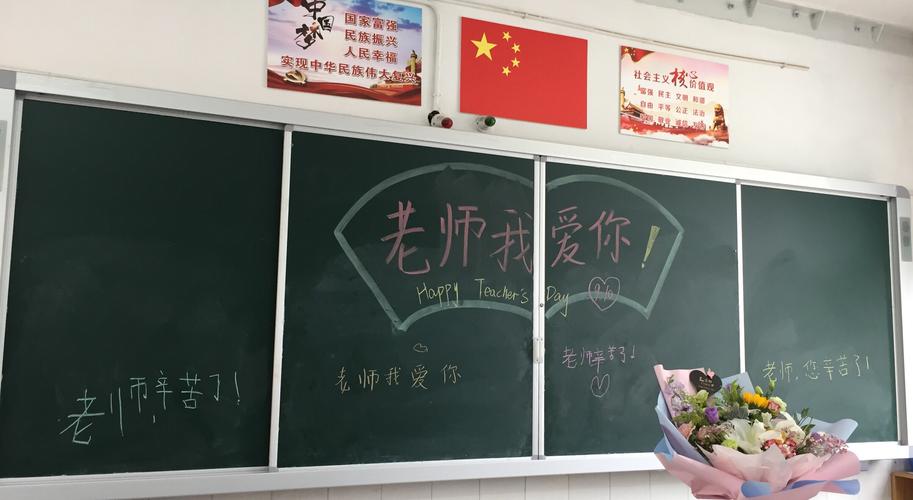 中国梦
国家富强
民族振兴
人民幸福
实现中华民族伟大复兴
社会主义核心价值观
富强 民主 文明 和谐
自由 平等 公正 法治
敬业 诚信
老师我爱你!
Happy Teacher's Day
9.10
老师辛苦了!
老师我爱你
老师辛苦了!
老师,您辛苦了!